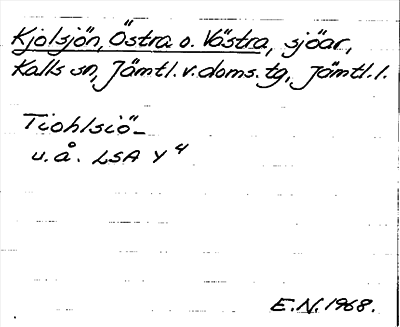 Kjolsjön, Östra o. Västra, sjöar,
Kalls sn, Jämtl. v. doms. tg, Jämtl. l.
Tiohlsiö–
u. å. LSA Y 4
E. N. 1968.